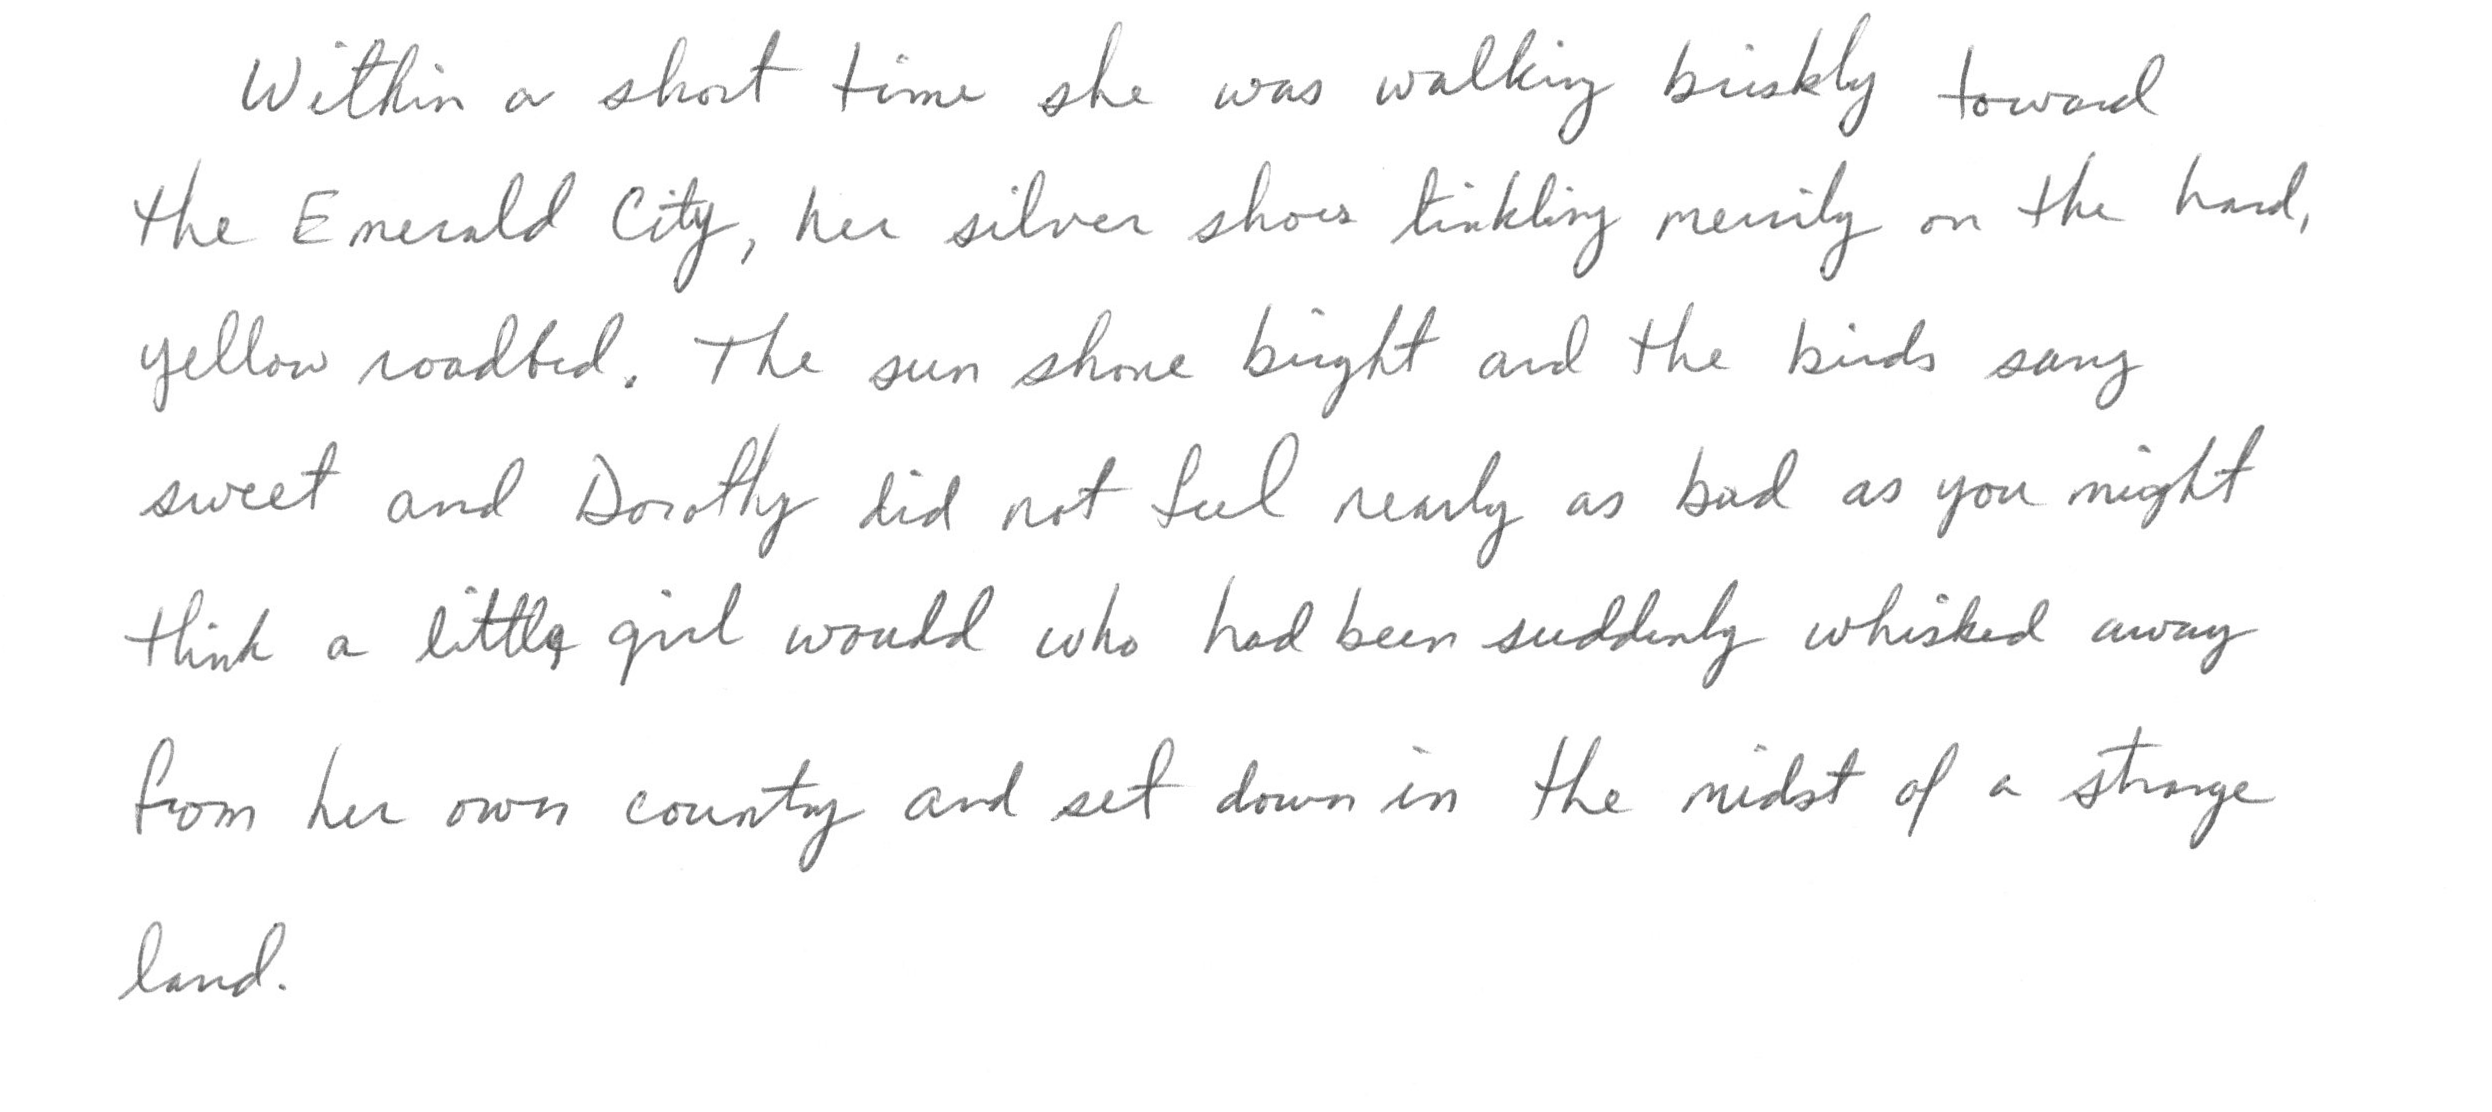 Within a short time she was walking briskly toward
the Emerald City, her silver shoes tinkling merrily on the hard,
yellow roadbed. The sun shone bright and the birds sang
sweet and Dorothy did not feel nearly as bad as you might
think a little girl would who had been suddenly whisked away
from her own country and set down in the midst of a strange
land.